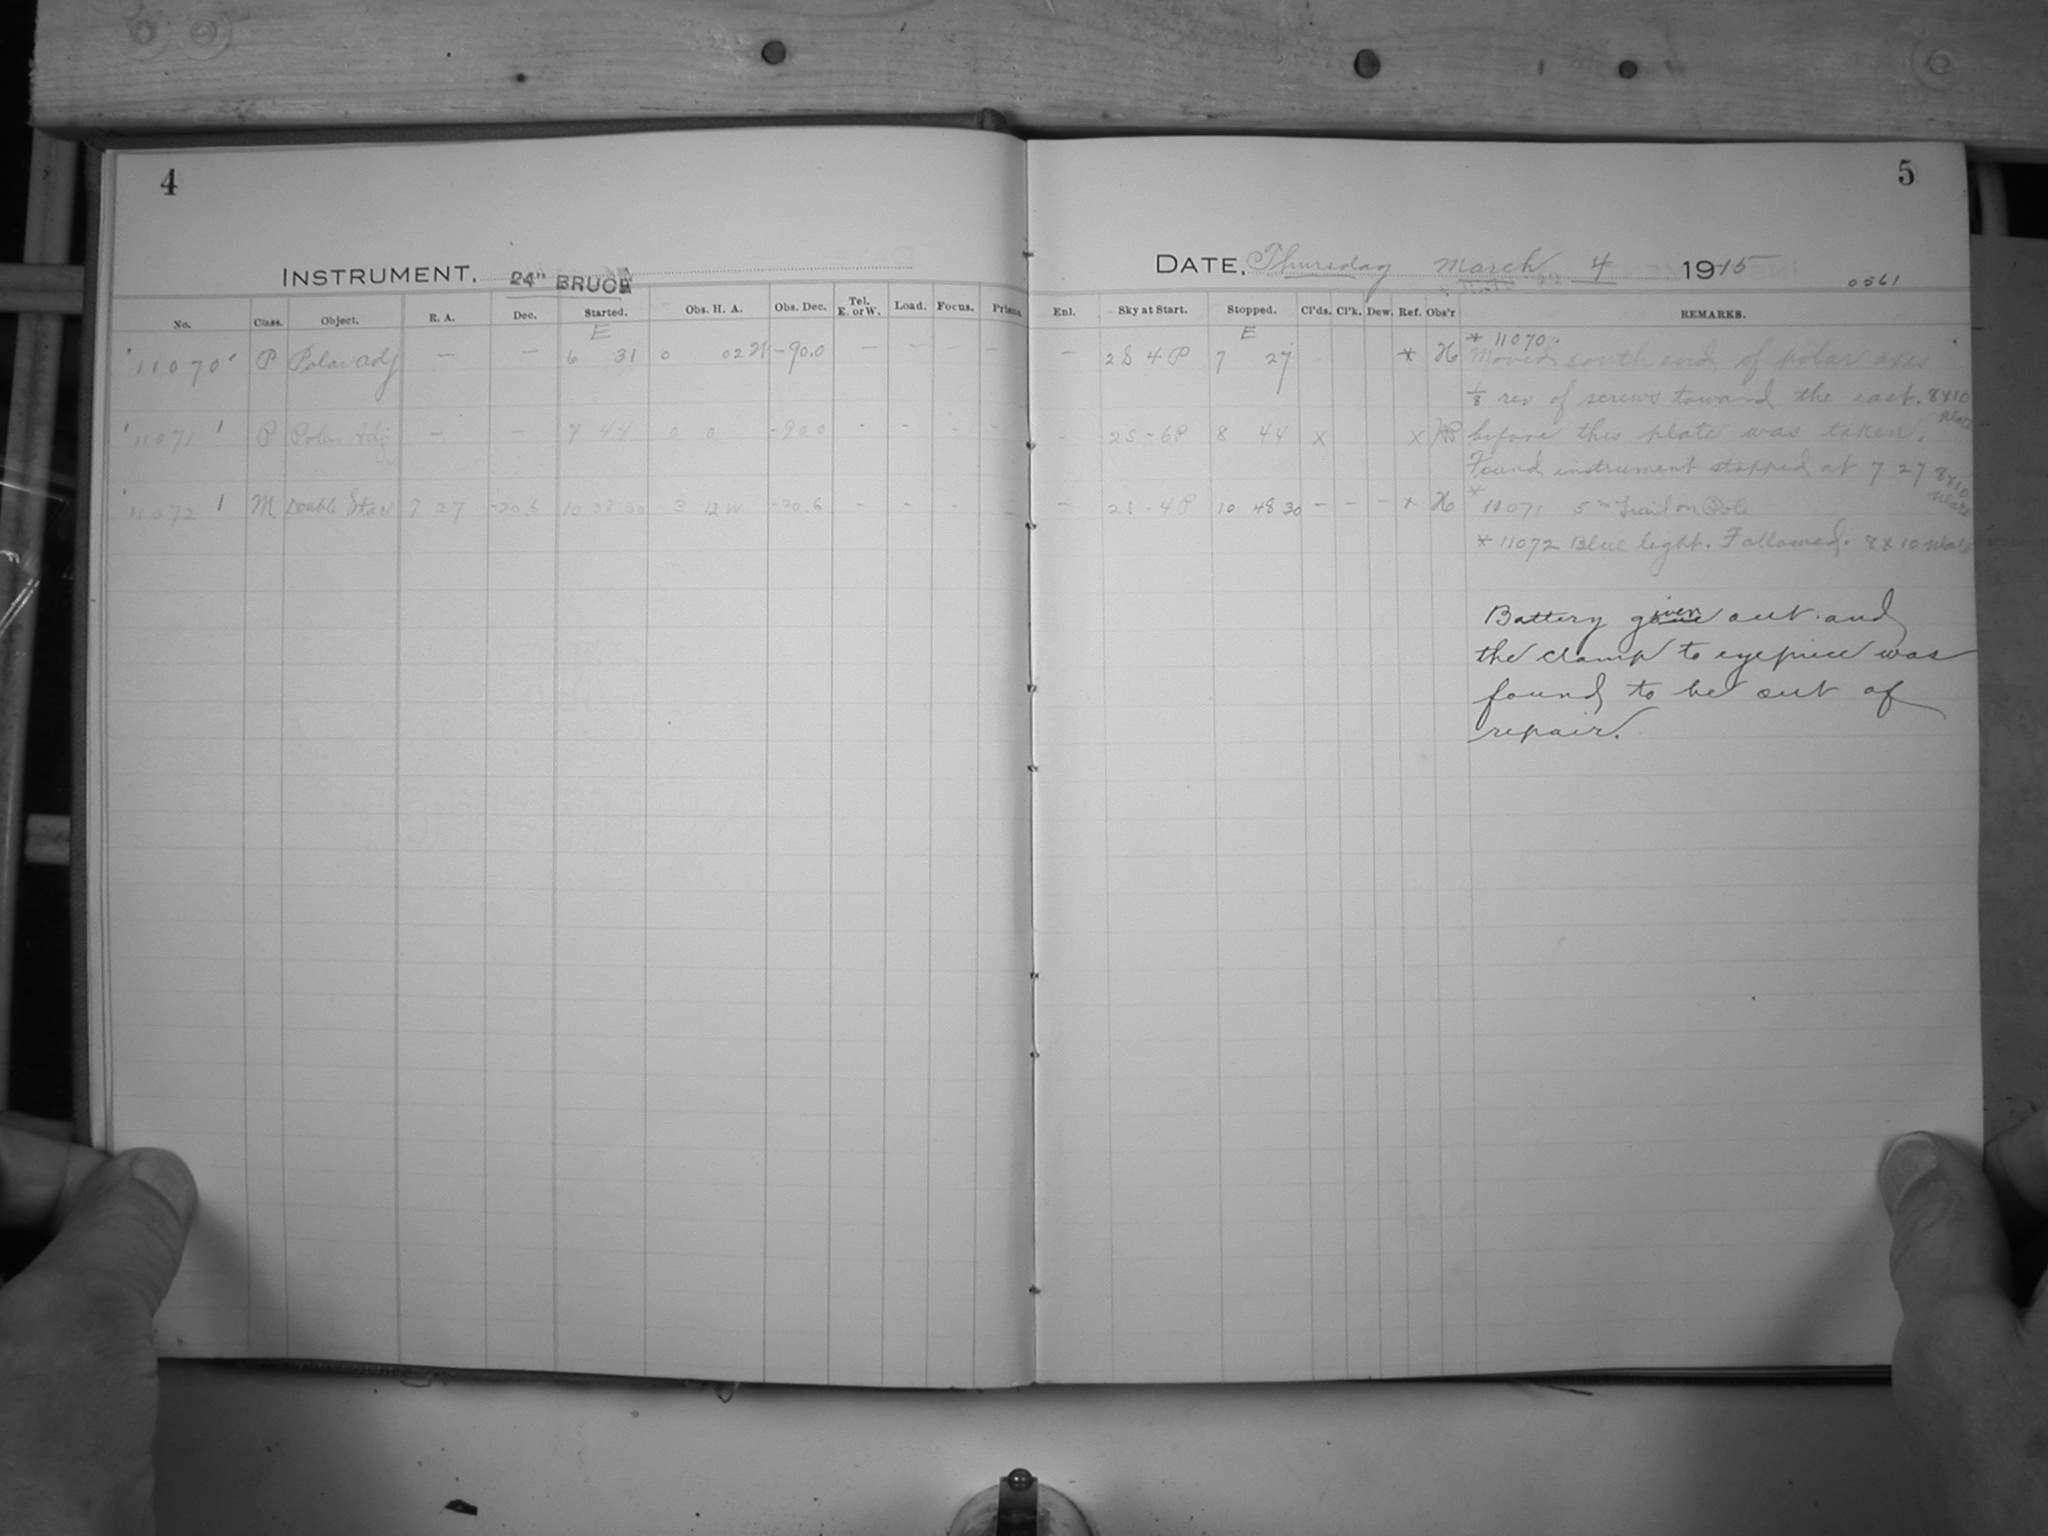 4
INSTRUMENT, 24" BRUCE
No. Class. Object. R. A. Dec. Started. Obs. H. A. Obs. Dec. Tel. E. or W. Load. Focus. Prism.
E
'11070' P Polar adj — — 6 31 0 02 W -90.0 — — — —
'11071' P Polar Adj — — 7 44 0 0 -90.0 - - - -
'11072' M Double Star 7 27 -20.6 10 38 30 3 12 W -20.6 - - - -
5
DATE, Thursday March 4 1915
0561
Enl. Sky at Start. Stopped. Cl'ds. Cl'k. Dew. Ref. Obs'r REMARKS.
E
* 11070.
— 2S 4P 7 27 * H Moved south end of polar axis
1/8 rev of screws toward the east. 8x10
- 2S-6P 8 44 x x before this plate was taken.
Found instrument stopped at 7 27 8x10
— 2S-4P 10 48 30 - - - * H * 11071 5m Trail on Pole
* 11072 Blue light. Followed. 8 x 10
Battery given out and
the clamp to eyepiece was
found to be out of
repair.